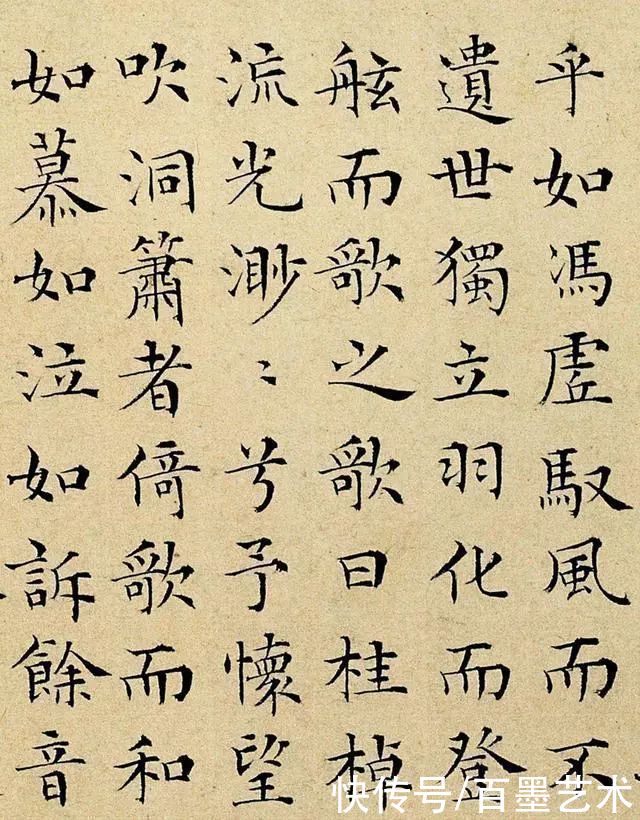 乎如馮虛馭風而不
遺世獨立羽化而登
舷而歌之歌曰桂棹
流光渺〻兮予懷望
吹洞簫者倚歌而和
如慕如泣如訴餘音
快传号/百墨艺术